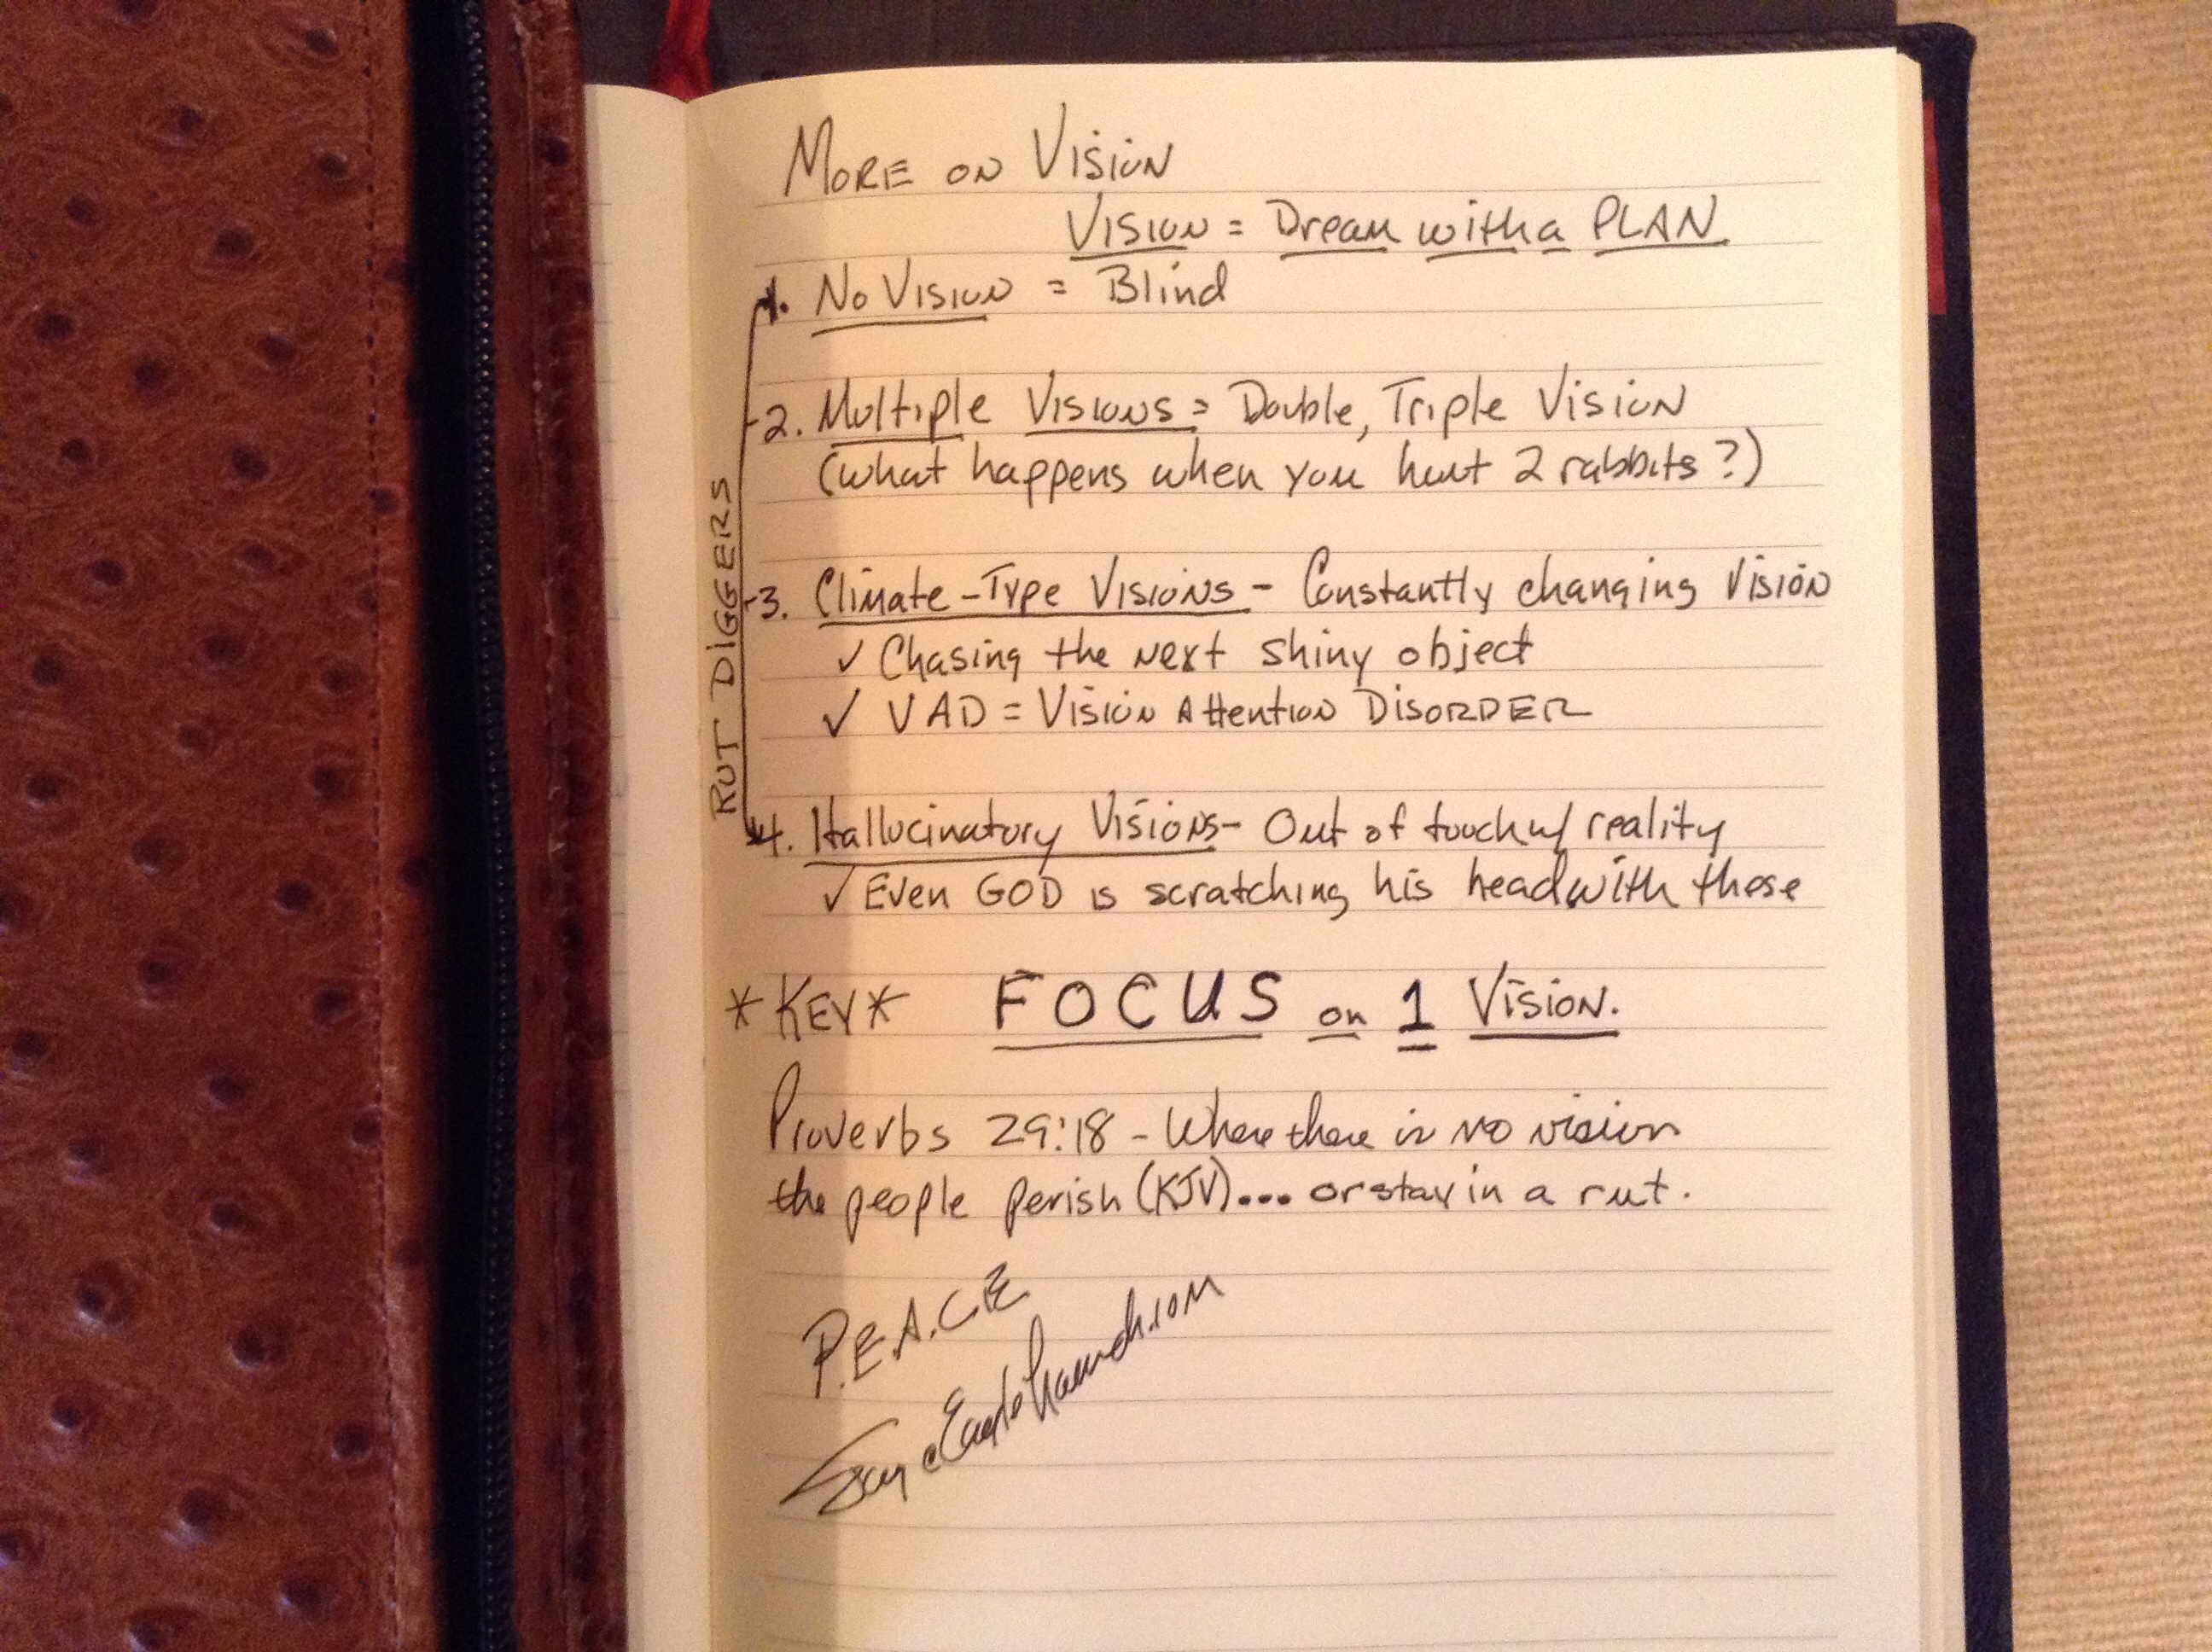 More on Vision
Vision = Dream with a PLAN
1. No Vision = Blind
2. Multiple Visions = Double, Triple Vision
(what happens when you hunt 2 rabbits?)
RUT DIGGERS
3. Climate-Type Visions - Constantly changing Vision
✓ Chasing the next shiny object
✓ VAD = Vision Attention DISORDER
4. Hallucinatory Visions - Out of touch w/ reality
✓ Even GOD is scratching his head with these
*KEY* FOCUS on 1 Vision.
Proverbs 29:18 - Where there is no vision
the people perish (KJV)... or stay in a rut.
P.E.A.C.E